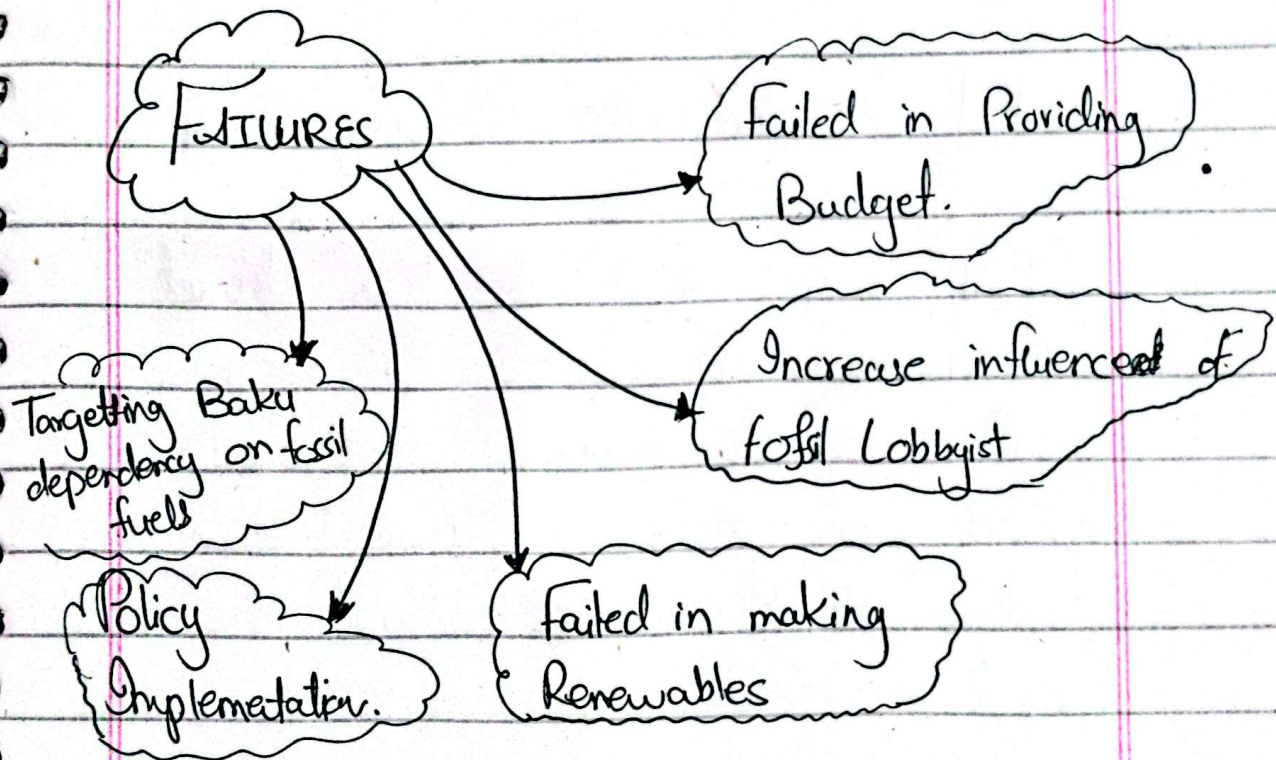 FAILURES
Failed in Providing
Budget.
Increase influence of
fossil Lobbyist
Targetting Baku
dependency on fossil
fuels
Policy
Implemetation.
Failed in making
Renewables